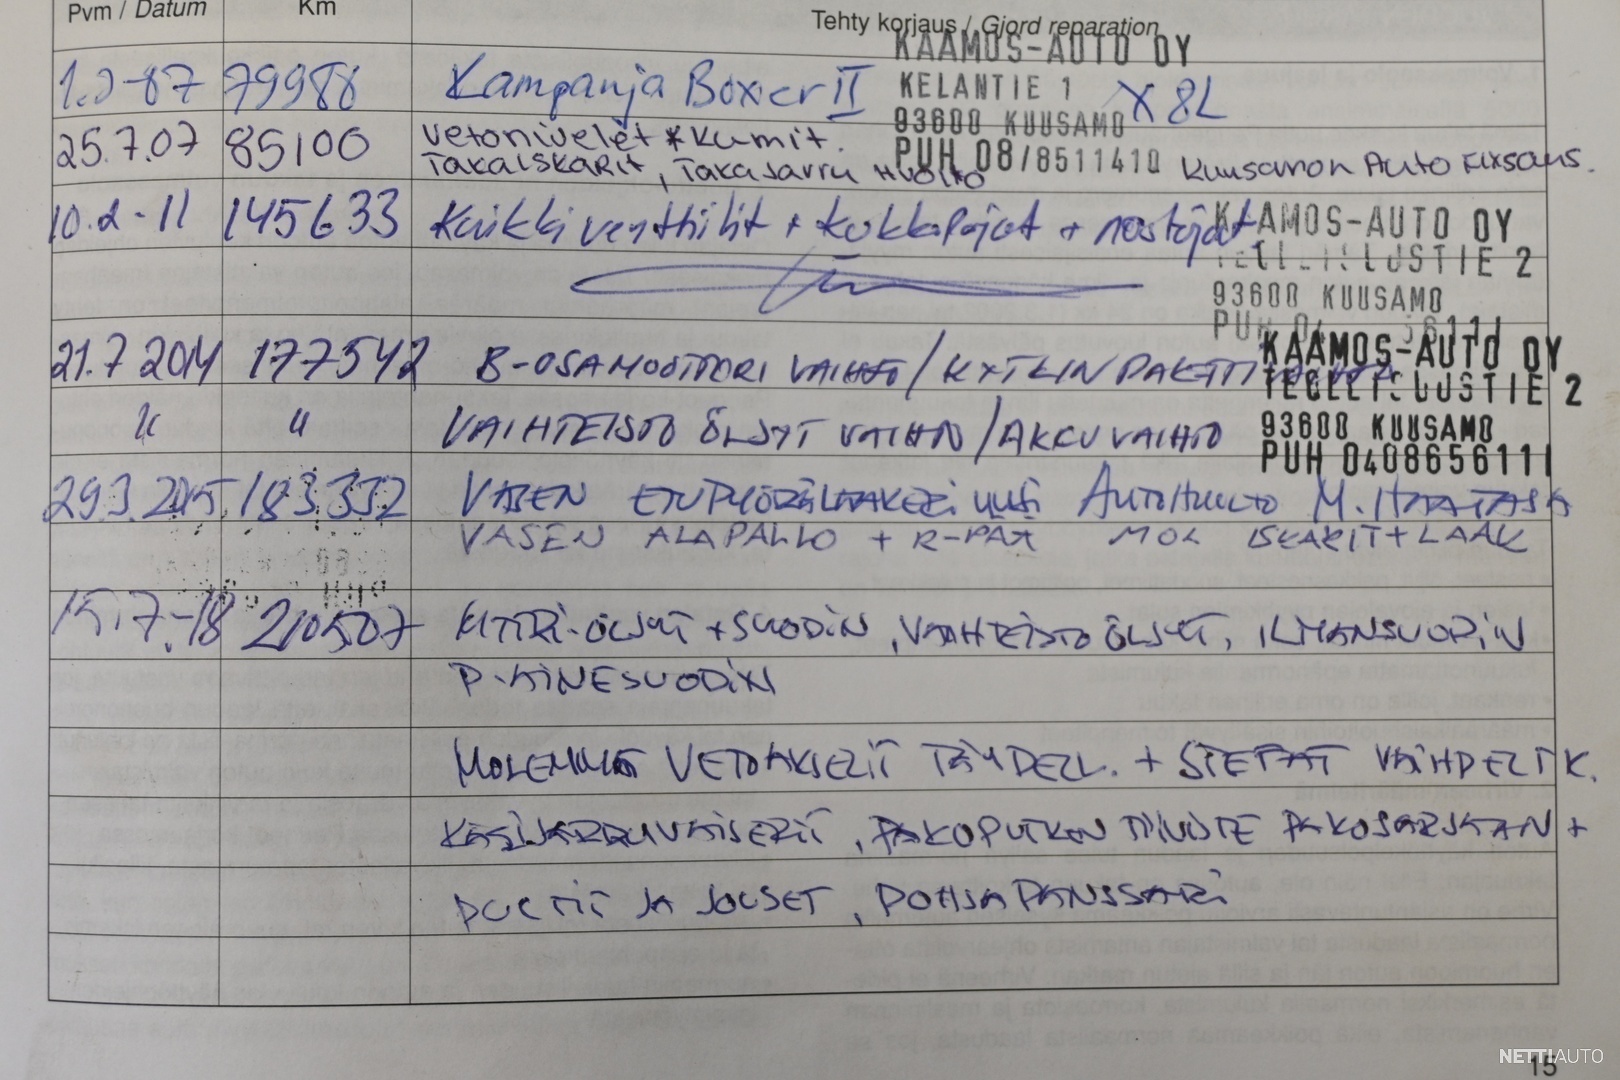 Pvm / Datum Km Tehty korjaus / Gjord reparation
KAAMOS-AUTO OY
79988 Kampanja Boxer II KELANTIE 1 X 8L
93600 KUUSAMO
25.7.07 85100 Vetonivelet * Kumit.
Takaiskarit, Takajarru Huolto PUH 08/8511410 Kuusamon Auto
10.2-11 145633 Kaikki venttiilit + kokkapäjät + nostajat KAAMOS-AUTO OY
TEOLLISUUSTIE 2
93600 KUUSAMO
PUH
21.7 2014 177542 B-OSAMOOTTORI VAIHTO/KYTKINPAKETTI KAAMOS-AUTO OY
TEOLLISUUSTIE 2
" " VAIHTEISTO ÖLJYT VAIHN/AKKU VAIHTO 93600 KUUSAMO
PUH 0408656111
29.3.2015 183.332 VASEN ETUPYÖRÄLAAKERI UUSI AUTOHUOLTO M. HAATAJA
VASEN ALAPALLO + R-PÄÄ MOL ISKARIT+LAAK
15.7-18 210507 MTRI-ÖLJYT + SUODIN, VAIHTEISTOÖLJYT, ILMANSUODIN
P-AINESUODIN
MOLEMMAT VETOAKSELIT TÄYDELL. + STEFAT VAIHDELTK.
KÄSIJARRUVAIJERIT, PAKOPUTKEN TIIVISTE PAKOSARJAAN +
PULTIT JA JOUSET, POHJAPANSSARI
15
NETTIAUTO